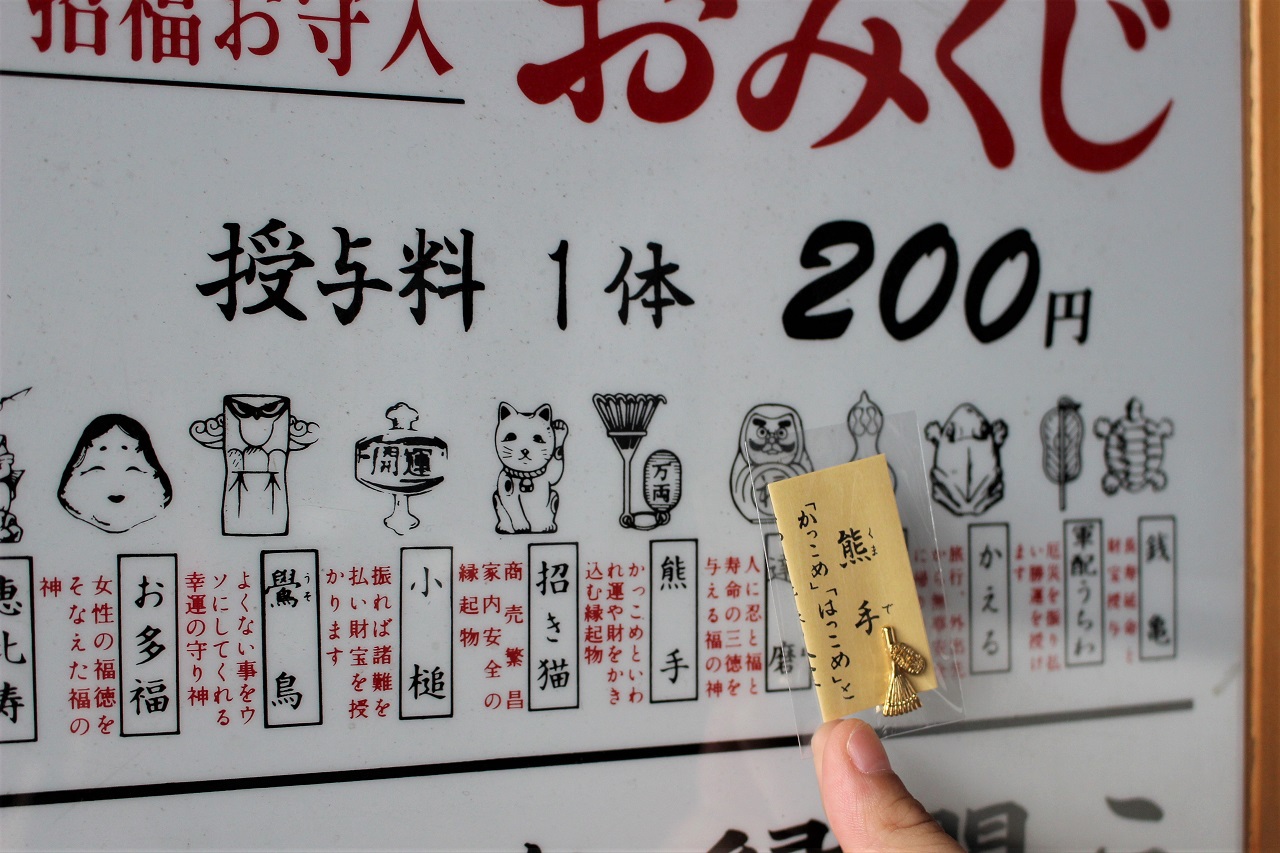 招福お守入
おみくじ
授与料 1体 200円
開運
万両
銭亀
長寿延命と
財宝授与
軍配うちわ
厄災を振り
い勝運を授け
ます
かえる
旅行、外出先
達磨
人に忍と福と
寿命の三徳を
与える福の神
熊手
かっこめといわ
れ運や財をかき
込む縁起物
招き猫
商売繁昌
家内安全の
縁起物
小槌
振れば諸難を
払い財宝を授
かります
鷽鳥
うそ
よくない事をウ
ソにしてくれる
幸運の守り神
お多福
女性の福徳を
そなえた福の
神
恵比寿
熊手
くまで
「かっこめ」「はっこめ」と